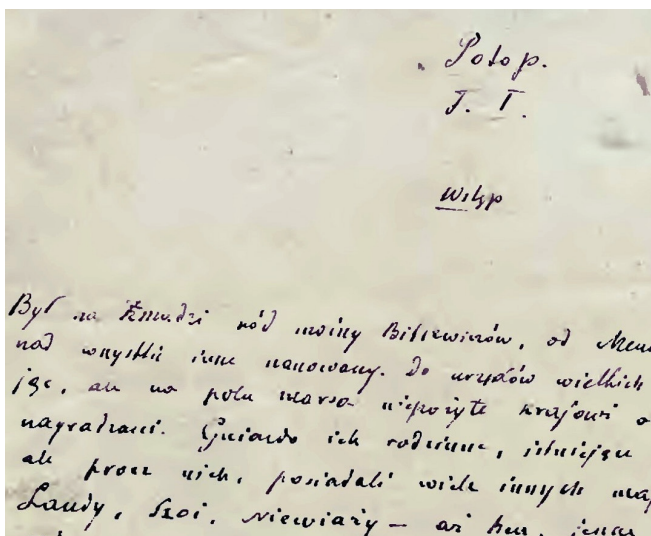 Potop.
T. I.
Wstęp
Był na Żmudzi ród możny Billewiczów, od Mend
nad wszystkie inne szanowany. Do urzędów wielkich
jęc, ale na polu Marsa niepożyte krajowi
nagradzani. Gniazdo ich rodzinne, istniejące
ale prócz nich, posiadali wiele innych
Laudy, Szoi, Niewiaży – aż hen, jeszcze